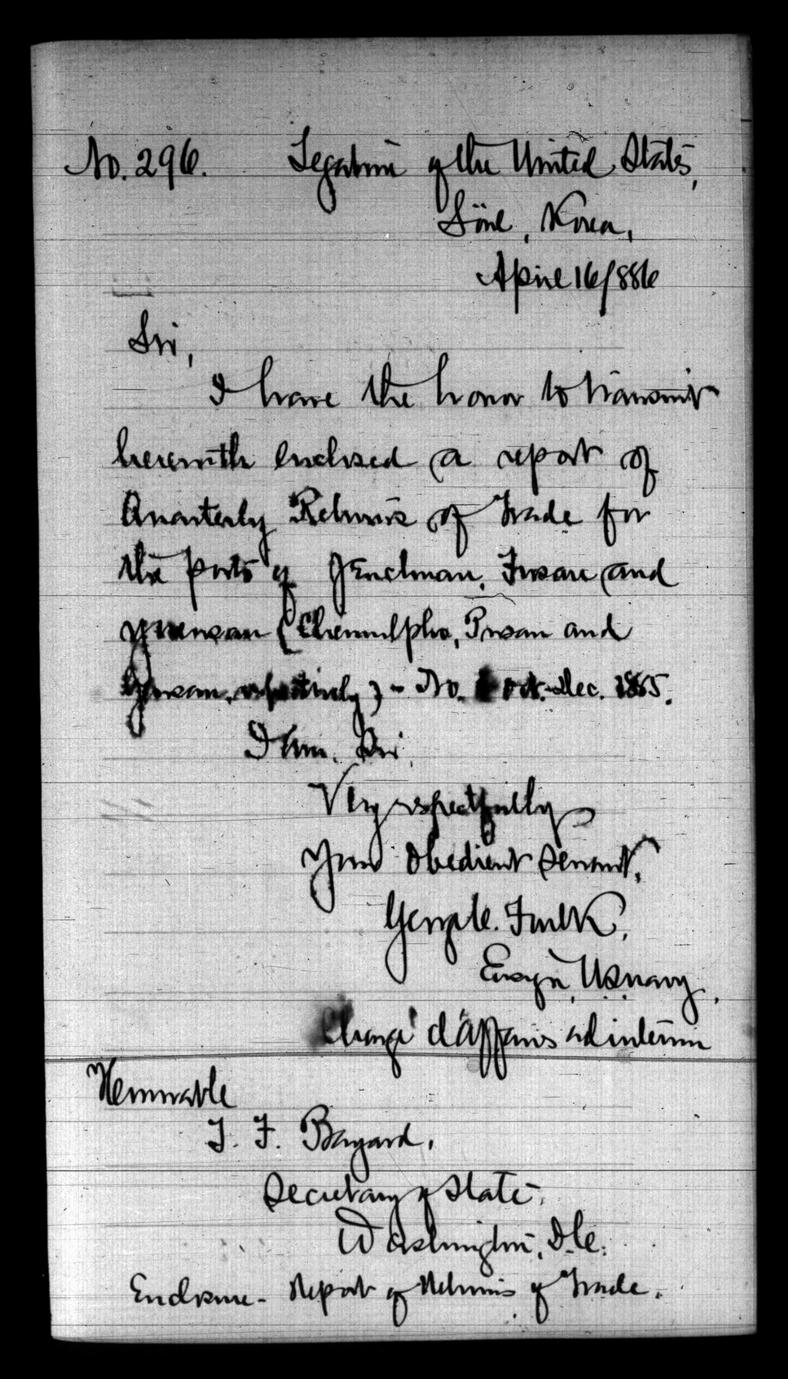 No. 296. Legation of the United States,
Söul, Korea,
April 16/886
Sir,
I have the honor to transmit
herewith enclosed a report of
Quarterly Returns of Trade for
the ports of Jenchuan, Fusan and
Yuensan (Chemulpho, Pusan and
Gensan, respectively) - No. Oct.-Dec. 1885.
I am, Sir,
Very respectfully
Your obedient servant,
George C. Foulk,
Ensign, U.S. navy,
Chargé d'Affaires ad interim
Honorable
T. F. Bayard,
Secretary of State,
Washington, D.C.
Enclosure - Report of Returns of Trade.